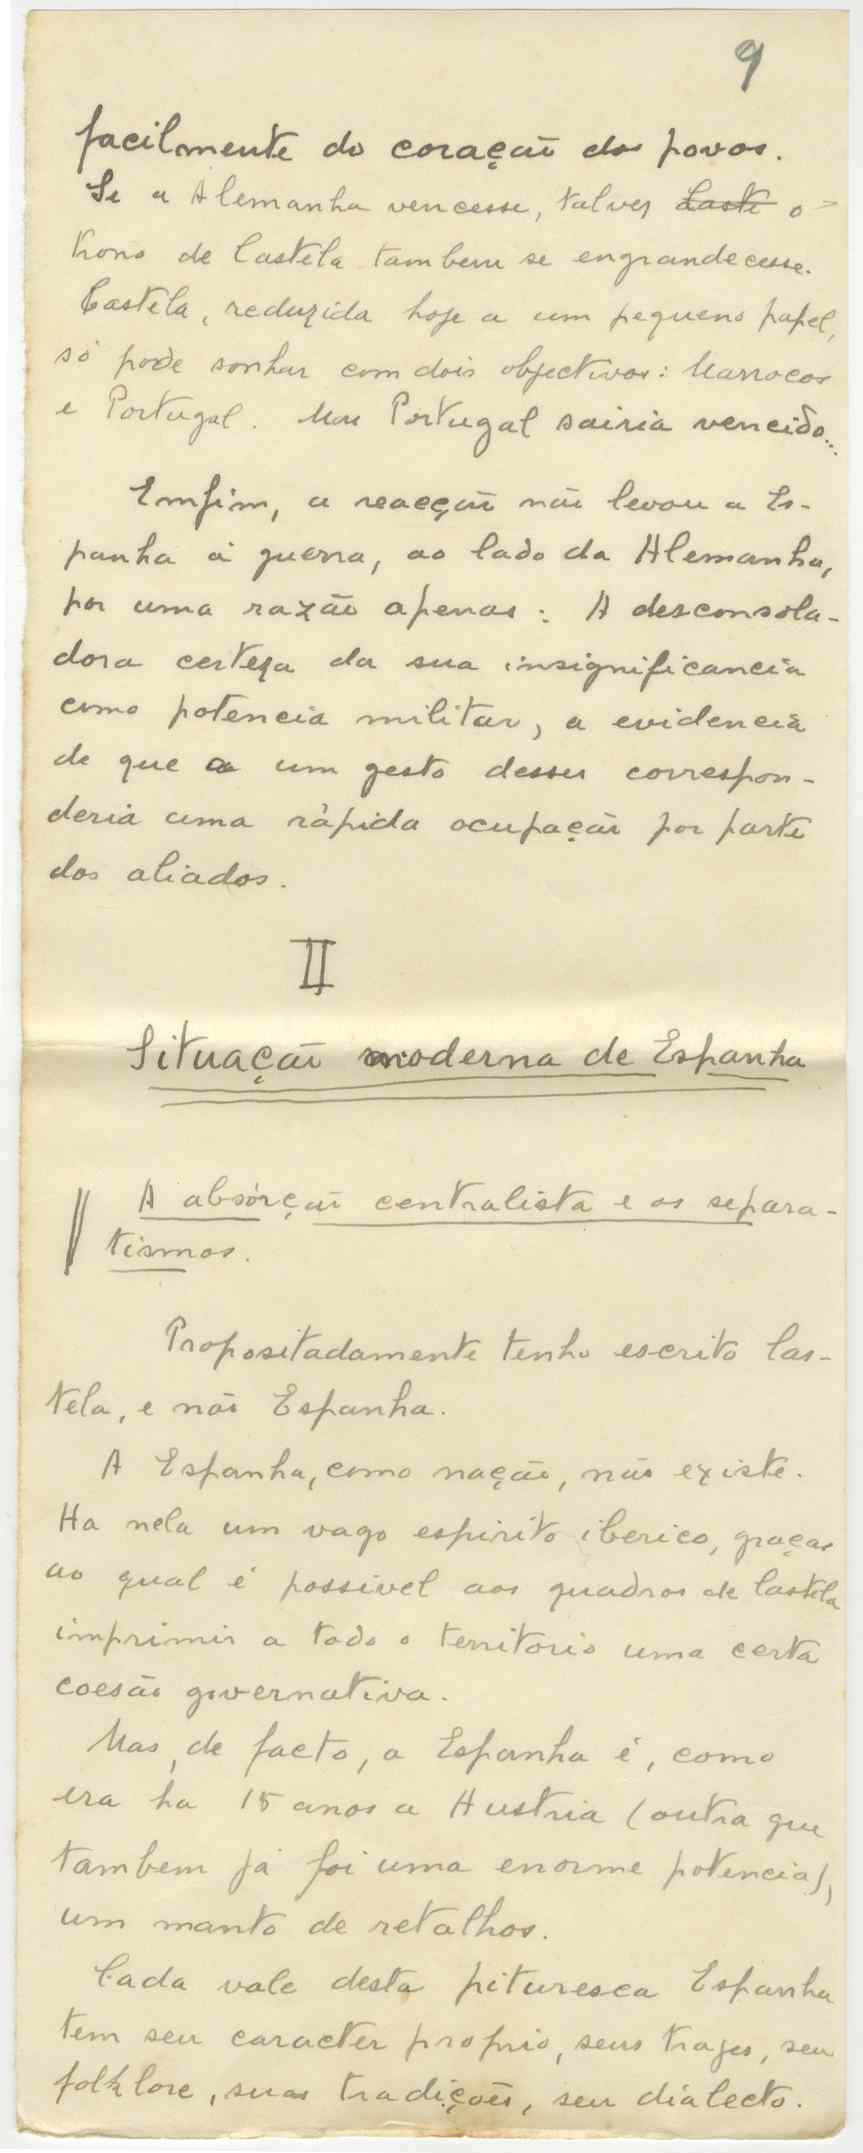 9
facilmente do coração dos povos.
Se a Alemanha vencesse, talvez Caste o
trono de Castela tambem se engrandecesse.
Castela, reduzida hoje a um pequeno papel,
só pode sonhar com dois objectivos: Marrocos
e Portugal. Mas Portugal sairia vencido...
Emfim, a reacção não levou a Es-
panha á guerra, ao lado da Alemanha,
por uma razão apenas: A desconsola-
dora certeza da sua insignificancia
como potencia militar, a evidencia
de que a um gesto desses correspon-
deria uma rápida ocupação por parte
dos aliados.
II
Situação moderna de Espanha
A absórção centralista e os separa-
tismos.
Propositadamente tenho escrito Cas-
tela, e não Espanha.
A Espanha, como nação, não existe.
Ha nela um vago espirito iberico, graças
ao qual é possivel aos quadros de Castela
imprimir a todo o territorio uma certa
coesão governativa.
Mas, de facto, a Espanha é, como
era ha 15 anos a Austria (outra que
tambem já foi uma enorme potencia),
um manto de retalhos.
Cada vale desta pituresca Espanha
tem seu caracter proprio, seus trajes, seu
folklore, suas tradições, seu dialecto.